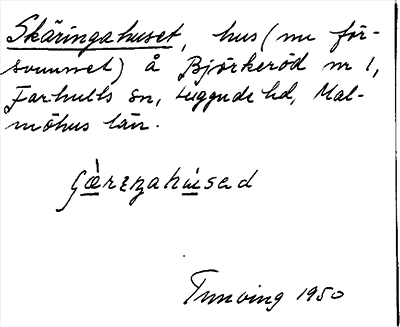 Skäringahuset, hus (nu för-
svunnet) å Björkeröd nr 1,
Farhults sn, Luggude hd, Mal-
möhus län.
Tunving 1950